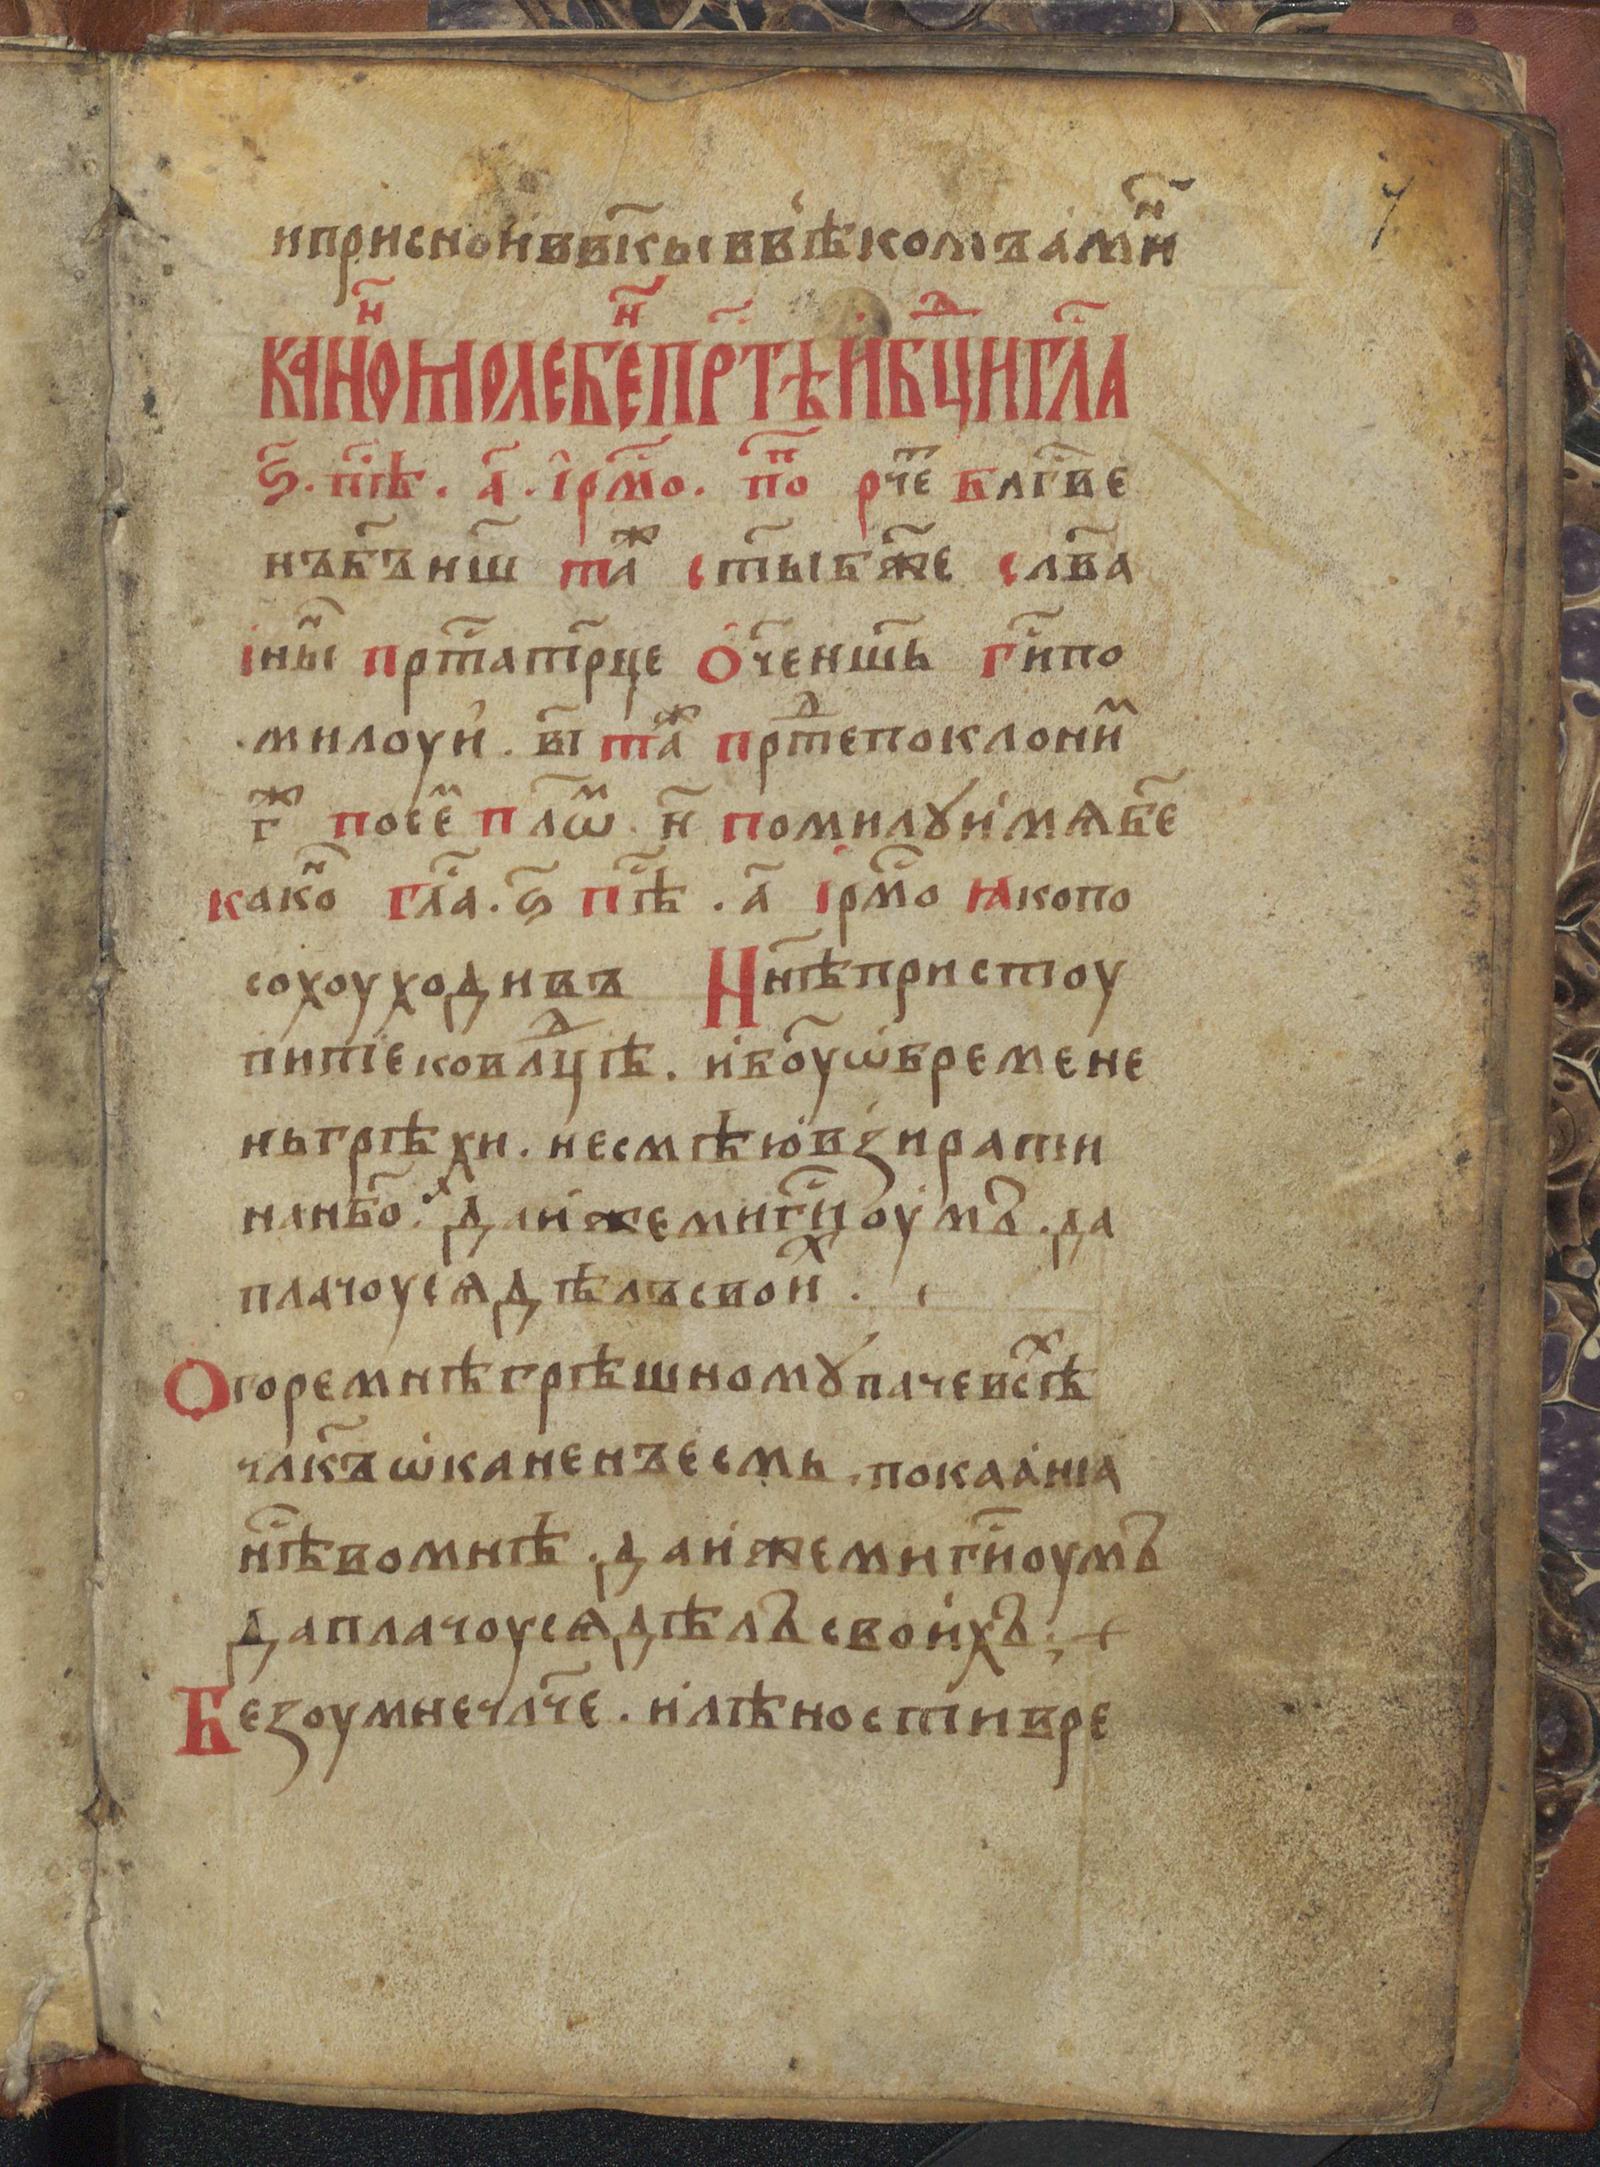 7
и присно и҆ в вѣ҃кы в вѣ́комъ а҆ми҃нⷩ
канѡ҃ⷩ молебе҃ⷩ пр҃тѣи б҃цⷣи гл҃а
ѕ҃. пѣ҃. а҃. і҆рмо҃. по҃ⷫ рч҃е бл҃гве
нъ б҃ъ нш҃ та҃ⷤ с҃ты б҃же сл҃ва
і ны҃ⷩ пр҃та тр҃це ѻ҃че нш҃ь г҃и по
милоуи҆. в҃і та҃ⷤ прⷣте поклони҃ⷨ
г҃ⷤ посе҃ⷨ пл҃ѡⷨ. н҃ помилꙋи҆ мѧ б҃е
како҃ⷩ гл҃а. ѕ҃ пѣ҃. а҃ і҆рмо҃ ꙗко по
сохоу ходивъ Н н҃ѣ пристоу
пите ко влⷣцѣ. и҆ бо҃у ѡ҆бремене
ны грѣхи. не смѣю взирати
на нб҃о. да́и же ми г҃и оумъ. да
плачоусѧ дѣлъ свои҆ⷯ. +
О горе мнѣ грѣшномꙋ паче всѣⷯ
члк҃ъ ѡ҆каненъ е҆смь. покаанїа
нѣ҃ во мнѣ. даи же ми г҃и оумъ
да плачоусѧ дѣлъ свои҆хъ ; +
Безоумне чл҃че. и҆ лѣности вре